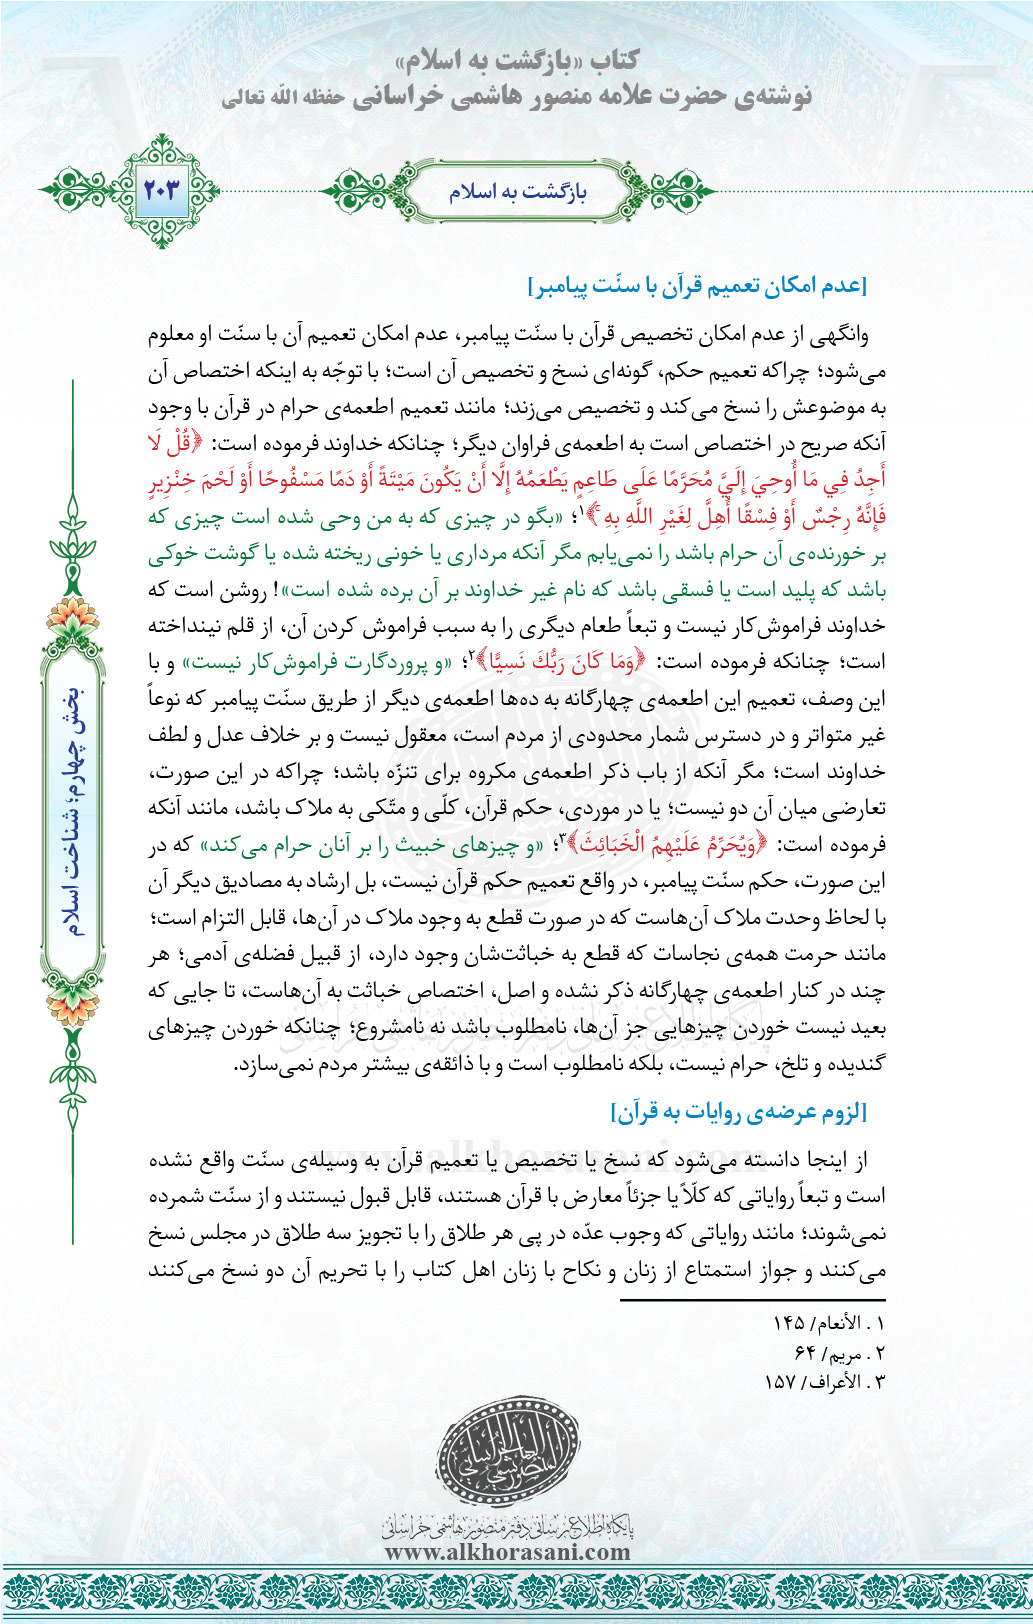 کتاب «بازگشت به اسلام»
نوشته‌ی حضرت علامه منصور هاشمی خراسانی حفظه الله تعالی
بازگشت به اسلام
۲۰۳
[عدم امکان تعمیم قرآن با سنّت پیامبر]
وانگهی از عدم امکان تخصیص قرآن با سنّت پیامبر، عدم امکان تعمیم آن با سنّت او معلوم
می‌شود؛ چراکه تعمیم حکم، گونه‌ای نسخ و تخصیص آن است؛ با توجّه به اینکه اختصاص آن
به موضوعش را نسخ می‌کند و تخصیص می‌زند؛ مانند تعمیم اطعمه‌ی حرام در قرآن با وجود
آنکه صریح در اختصاص است به اطعمه‌ی فراوان دیگر؛ چنانکه خداوند فرموده است: ﴿قُلْ لَا
أَجِدُ فِي مَا أُوحِيَ إِلَيَّ مُحَرَّمًا عَلَى طَاعِمٍ يَطْعَمُهُ إِلَّا أَنْ يَكُونَ مَيْتَةً أَوْ دَمًا مَسْفُوحًا أَوْ لَحْمَ خِنْزِيرٍ
فَإِنَّهُ رِجْسٌ أَوْ فِسْقًا أُهِلَّ لِغَيْرِ اللَّهِ بِهِ ۚ﴾۱؛ «بگو در چیزی که به من وحی شده است چیزی که
بر خورنده‌ی آن حرام باشد را نمی‌یابم مگر آنکه مرداری یا خونی ریخته شده یا گوشت خوکی
باشد که پلید است یا فسقی باشد که نام غیر خداوند بر آن برده شده است»! روشن است که
خداوند فراموش‌کار نیست و تبعاً طعام دیگری را به سبب فراموش کردن آن، از قلم نینداخته
است؛ چنانکه فرموده است: ﴿وَمَا كَانَ رَبُّكَ نَسِيًّا﴾۲؛ «و پروردگارت فراموش‌کار نیست» و با
این وصف، تعمیم این اطعمه‌ی چهارگانه به ده‌ها اطعمه‌ی دیگر از طریق سنّت پیامبر که نوعاً
غیر متواتر و در دسترس شمار محدودی از مردم است، معقول نیست و بر خلاف عدل و لطف
خداوند است؛ مگر آنکه از باب ذکر اطعمه‌ی مکروه برای تنزّه باشد؛ چراکه در این صورت،
تعارضی میان آن دو نیست؛ یا در موردی، حکم قرآن، کلّی و متّکی به ملاک باشد، مانند آنکه
فرموده است: ﴿وَيُحَرِّمُ عَلَيْهِمُ الْخَبَائِثَ﴾۳؛ «و چیزهای خبیث را بر آنان حرام می‌کند» که در
این صورت، حکم سنّت پیامبر، در واقع تعمیم حکم قرآن نیست، بل ارشاد به مصادیق دیگر آن
با لحاظ وحدت ملاک آن‌هاست که در صورت قطع به وجود ملاک در آن‌ها، قابل التزام است؛
مانند حرمت همه‌ی نجاسات که قطع به خباثت‌شان وجود دارد، از قبیل فضله‌ی آدمی؛ هر
چند در کنار اطعمه‌ی چهارگانه ذکر نشده و اصل، اختصاص خباثت به آن‌هاست، تا جایی که
بعید نیست خوردن چیزهایی جز آن‌ها، نامطلوب باشد نه نامشروع؛ چنانکه خوردن چیزهای
گندیده و تلخ، حرام نیست، بلکه نامطلوب است و با ذائقه‌ی بیشتر مردم نمی‌سازد.
[لزوم عرضه‌ی روایات به قرآن]
از اینجا دانسته می‌شود که نسخ یا تخصیص یا تعمیم قرآن به وسیله‌ی سنّت واقع نشده
است و تبعاً روایاتی که کلّاً یا جزئاً معارض با قرآن هستند، قابل قبول نیستند و از سنّت شمرده
نمی‌شوند؛ مانند روایاتی که وجوب عدّه در پی هر طلاق را با تجویز سه طلاق در مجلس نسخ
می‌کنند و جواز استمتاع از زنان و نکاح با زنان اهل کتاب را با تحریم آن دو نسخ می‌کنند
۱ . الأنعام/ ۱۴۵
۲ . مریم/ ۶۴
۳ . الأعراف/ ۱۵۷
بخش چهارم؛ شناخت اسلام
المنصور الهاشمي الخراساني
پایگاه اطلاع‌رسانی دفتر منصور هاشمی خراسانی
www.alkhorasani.com
پایگاه اطلاع‌رسانی دفتر منصور هاشمی خراسانی
www.alkhorasani.com